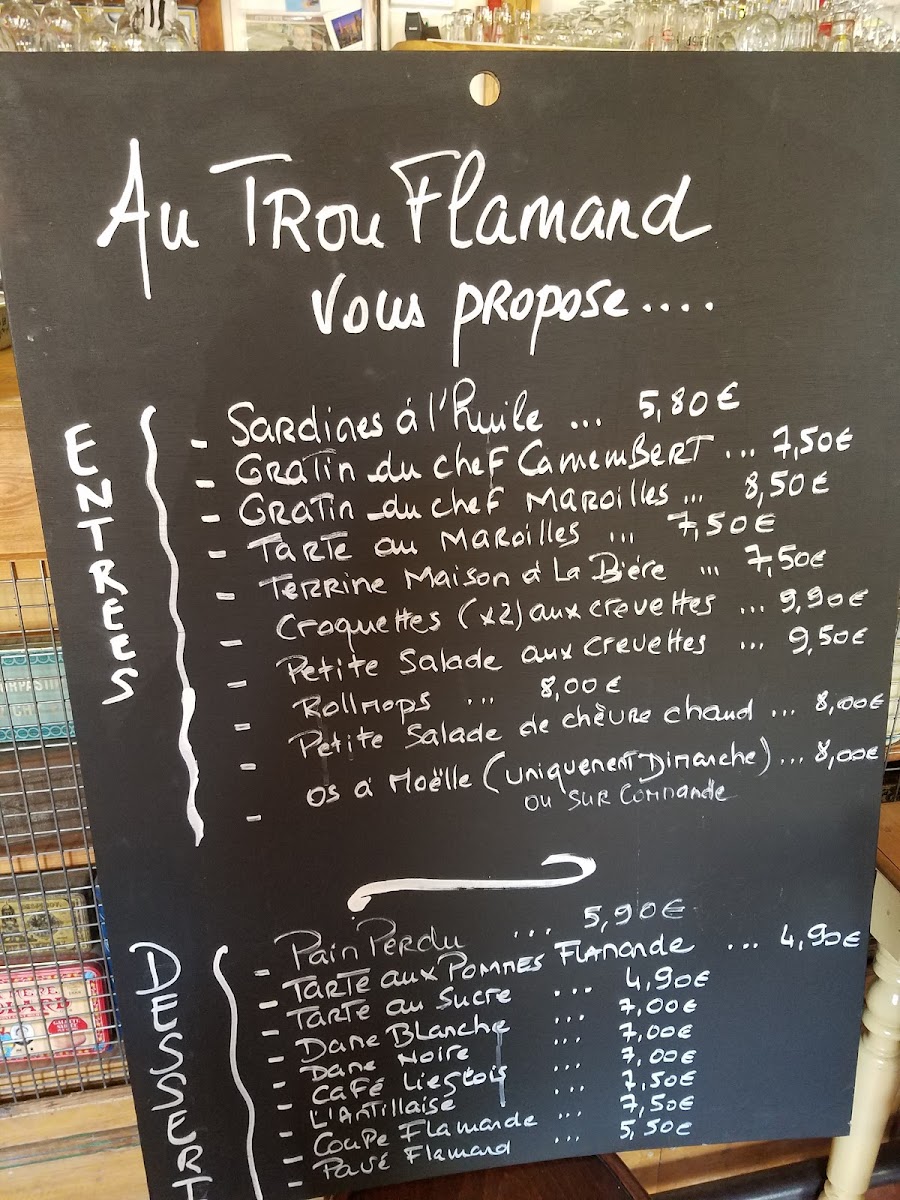 Au Trou Flamand
Vous propose....
ENTREES
- Sardines á l'huile ... 5,80€
- Gratin du chef Camembert ... 7,50€
- Gratin du chef Maroilles ... 8,50€
- Tarte au Maroilles ... 7,50€
- Terrine Maison á La Bière ... 7,50€
- Croquettes (x2) aux crevettes ... 9,90€
- Petite Salade aux crevettes ... 9,50€
- Rollmops ... 8,00€
- Petite Salade de chèvre chaud ... 8,00€
- os a Moëlle (uniquement Dimanche) ... 8,00€
ou sur commande
DESSERT
- Pain Perdu ... 5,90€
- Tarte aux Pommes Flamande ... 4,90€
- Tarte au Sucre ... 4,90€
- Dame Blanche ... 7,00€
- Dame Noire ... 7,00€
- Café Liegeois ... 7,00€
- L'Antillaise ... 7,50€
- Coupe Flamande ... 7,50€
- Pavé Flamand ... 5,50€